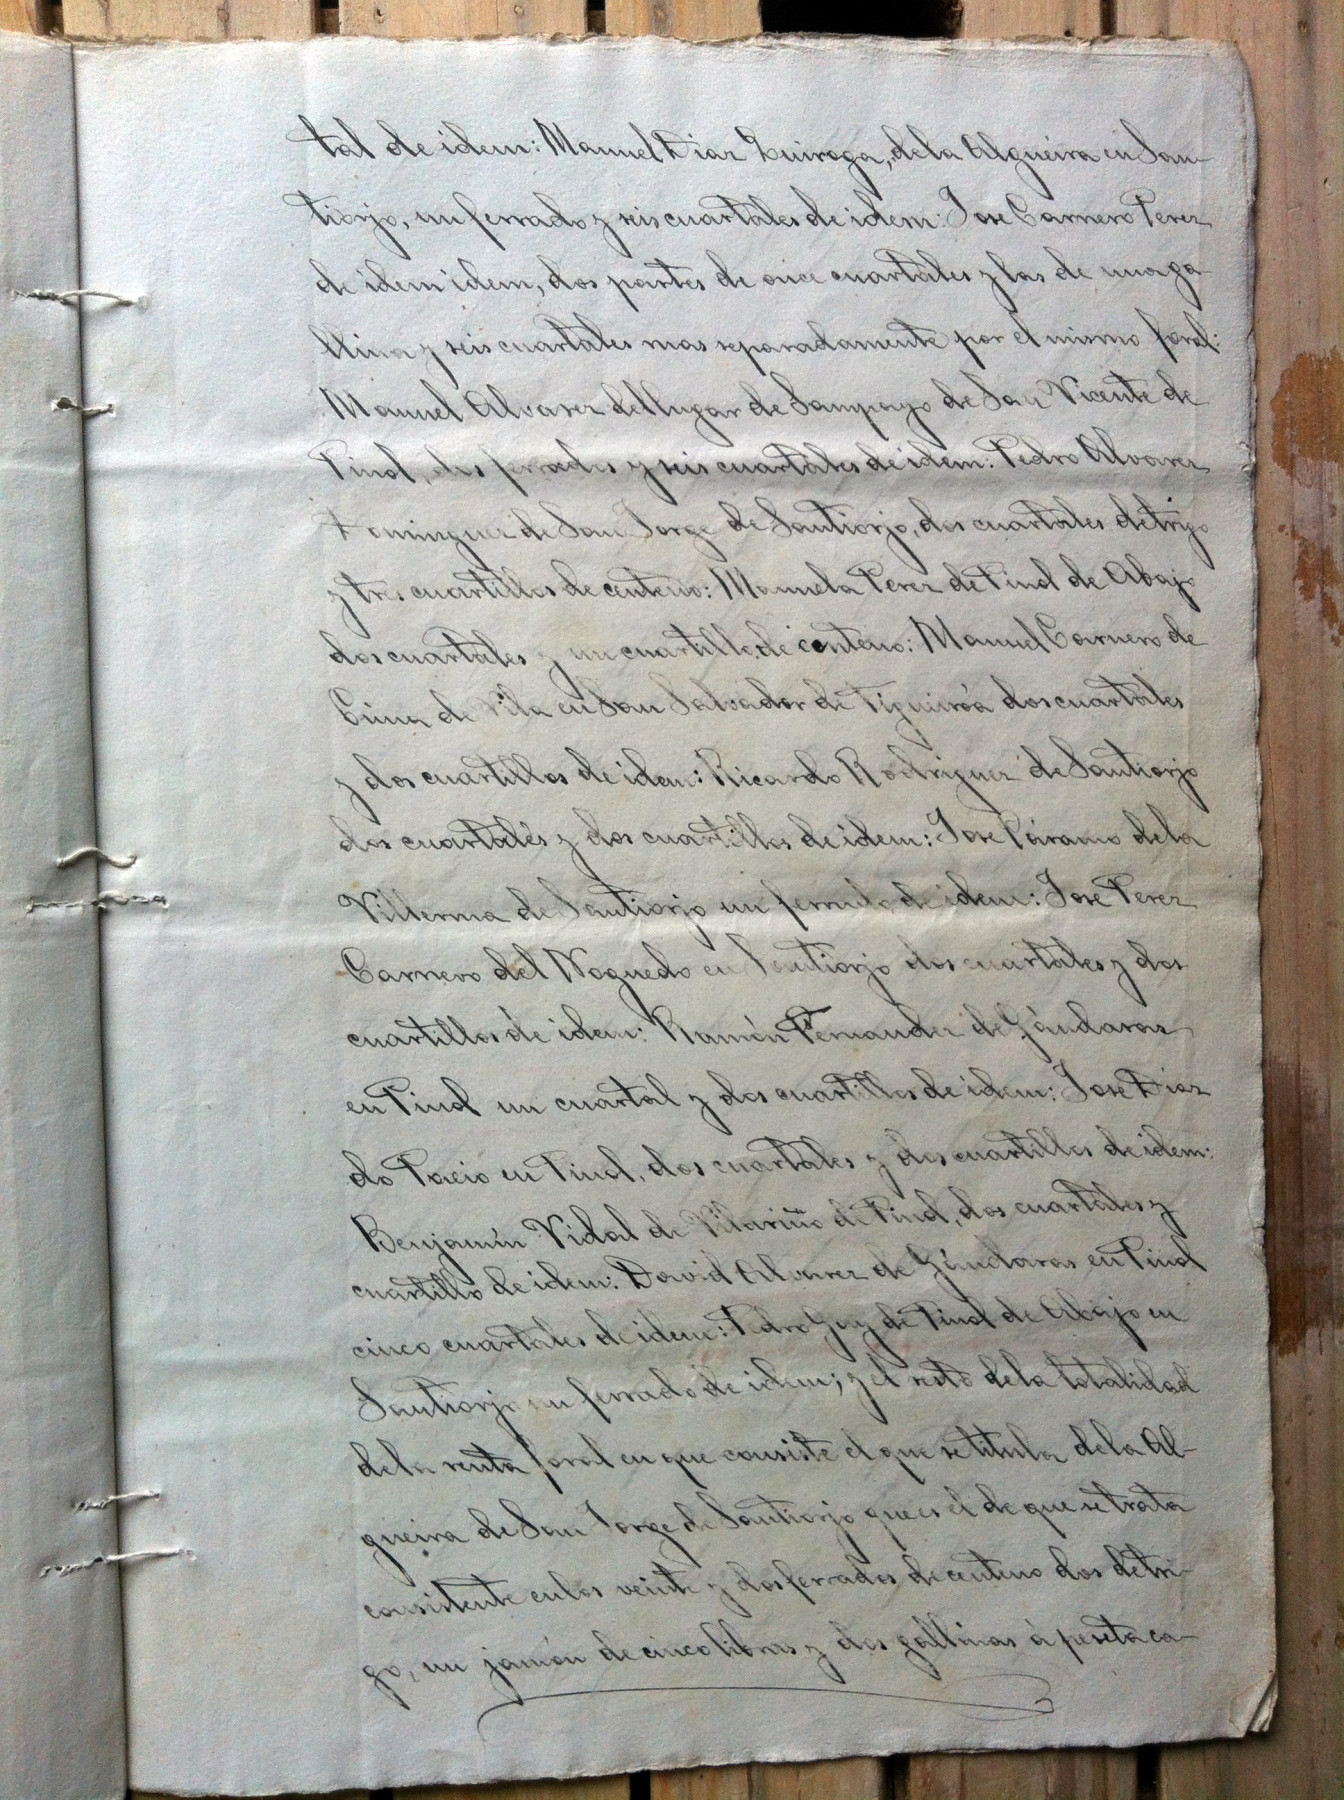 tal de idem: Manuel Diaz Quiroga, dela Algueira en San-
tiorjo, un ferrado y seis cuartales de idem: Jose Carnero Perez
de idem idem, dos partes de once cuartales y las de una ga-
llina y seis cuartales mas separadamente por el mismo foral:
Manuel Alvarez del lugar de Sampayo de San Vicente de
Pinol, dos ferrados y seis cuartales de idem: Pedro Alvarez
Dominguez de San Jorge de Santiorjo, dos cuartales de trigo
y tres cuartillos de centeno: Manuela Perez de Pinol de Abajo
dos cuartales y un cuartillo de centeno: Manuel Carnero de
Cima de Vila en San Salvador de Figueiróa dos cuartales
y dos cuartillos de idem: Ricardo Rodriguez de Santiorjo
dos cuartales y dos cuartillos de idem: Jose Páramo dela
Villerma de Santiorjo un ferrado de idem: José Perez
Carnero del Noguedo en Santiorjo dos cuartales y dos
cuartillos de idem: Ramón Fernandez de Gándaras
en Pinol un cuartal y dos cuartillos de idem: Jose Diaz
do Pacio en Pinol, dos cuartales y dos cuartillos de idem:
Benjamín Vidal de Vilariño de Pinol, dos cuartales y
cuartillo de idem: David Alvarez de Gándaras en Pinol
cinco cuartales de idem: Pedro Guy de Pinol de Abajo en
Santiorjo un ferrado de idem; y el resto dela totalidad
dela renta foral en que consiste el que se titula dela Al-
gueira de San Jorge de Santiorjo que es el de que se trata
consistente en los veinte y dos ferrados de centeno dos de tri-
go, un jamón de cinco libras y dos gallinas á peseta ca-